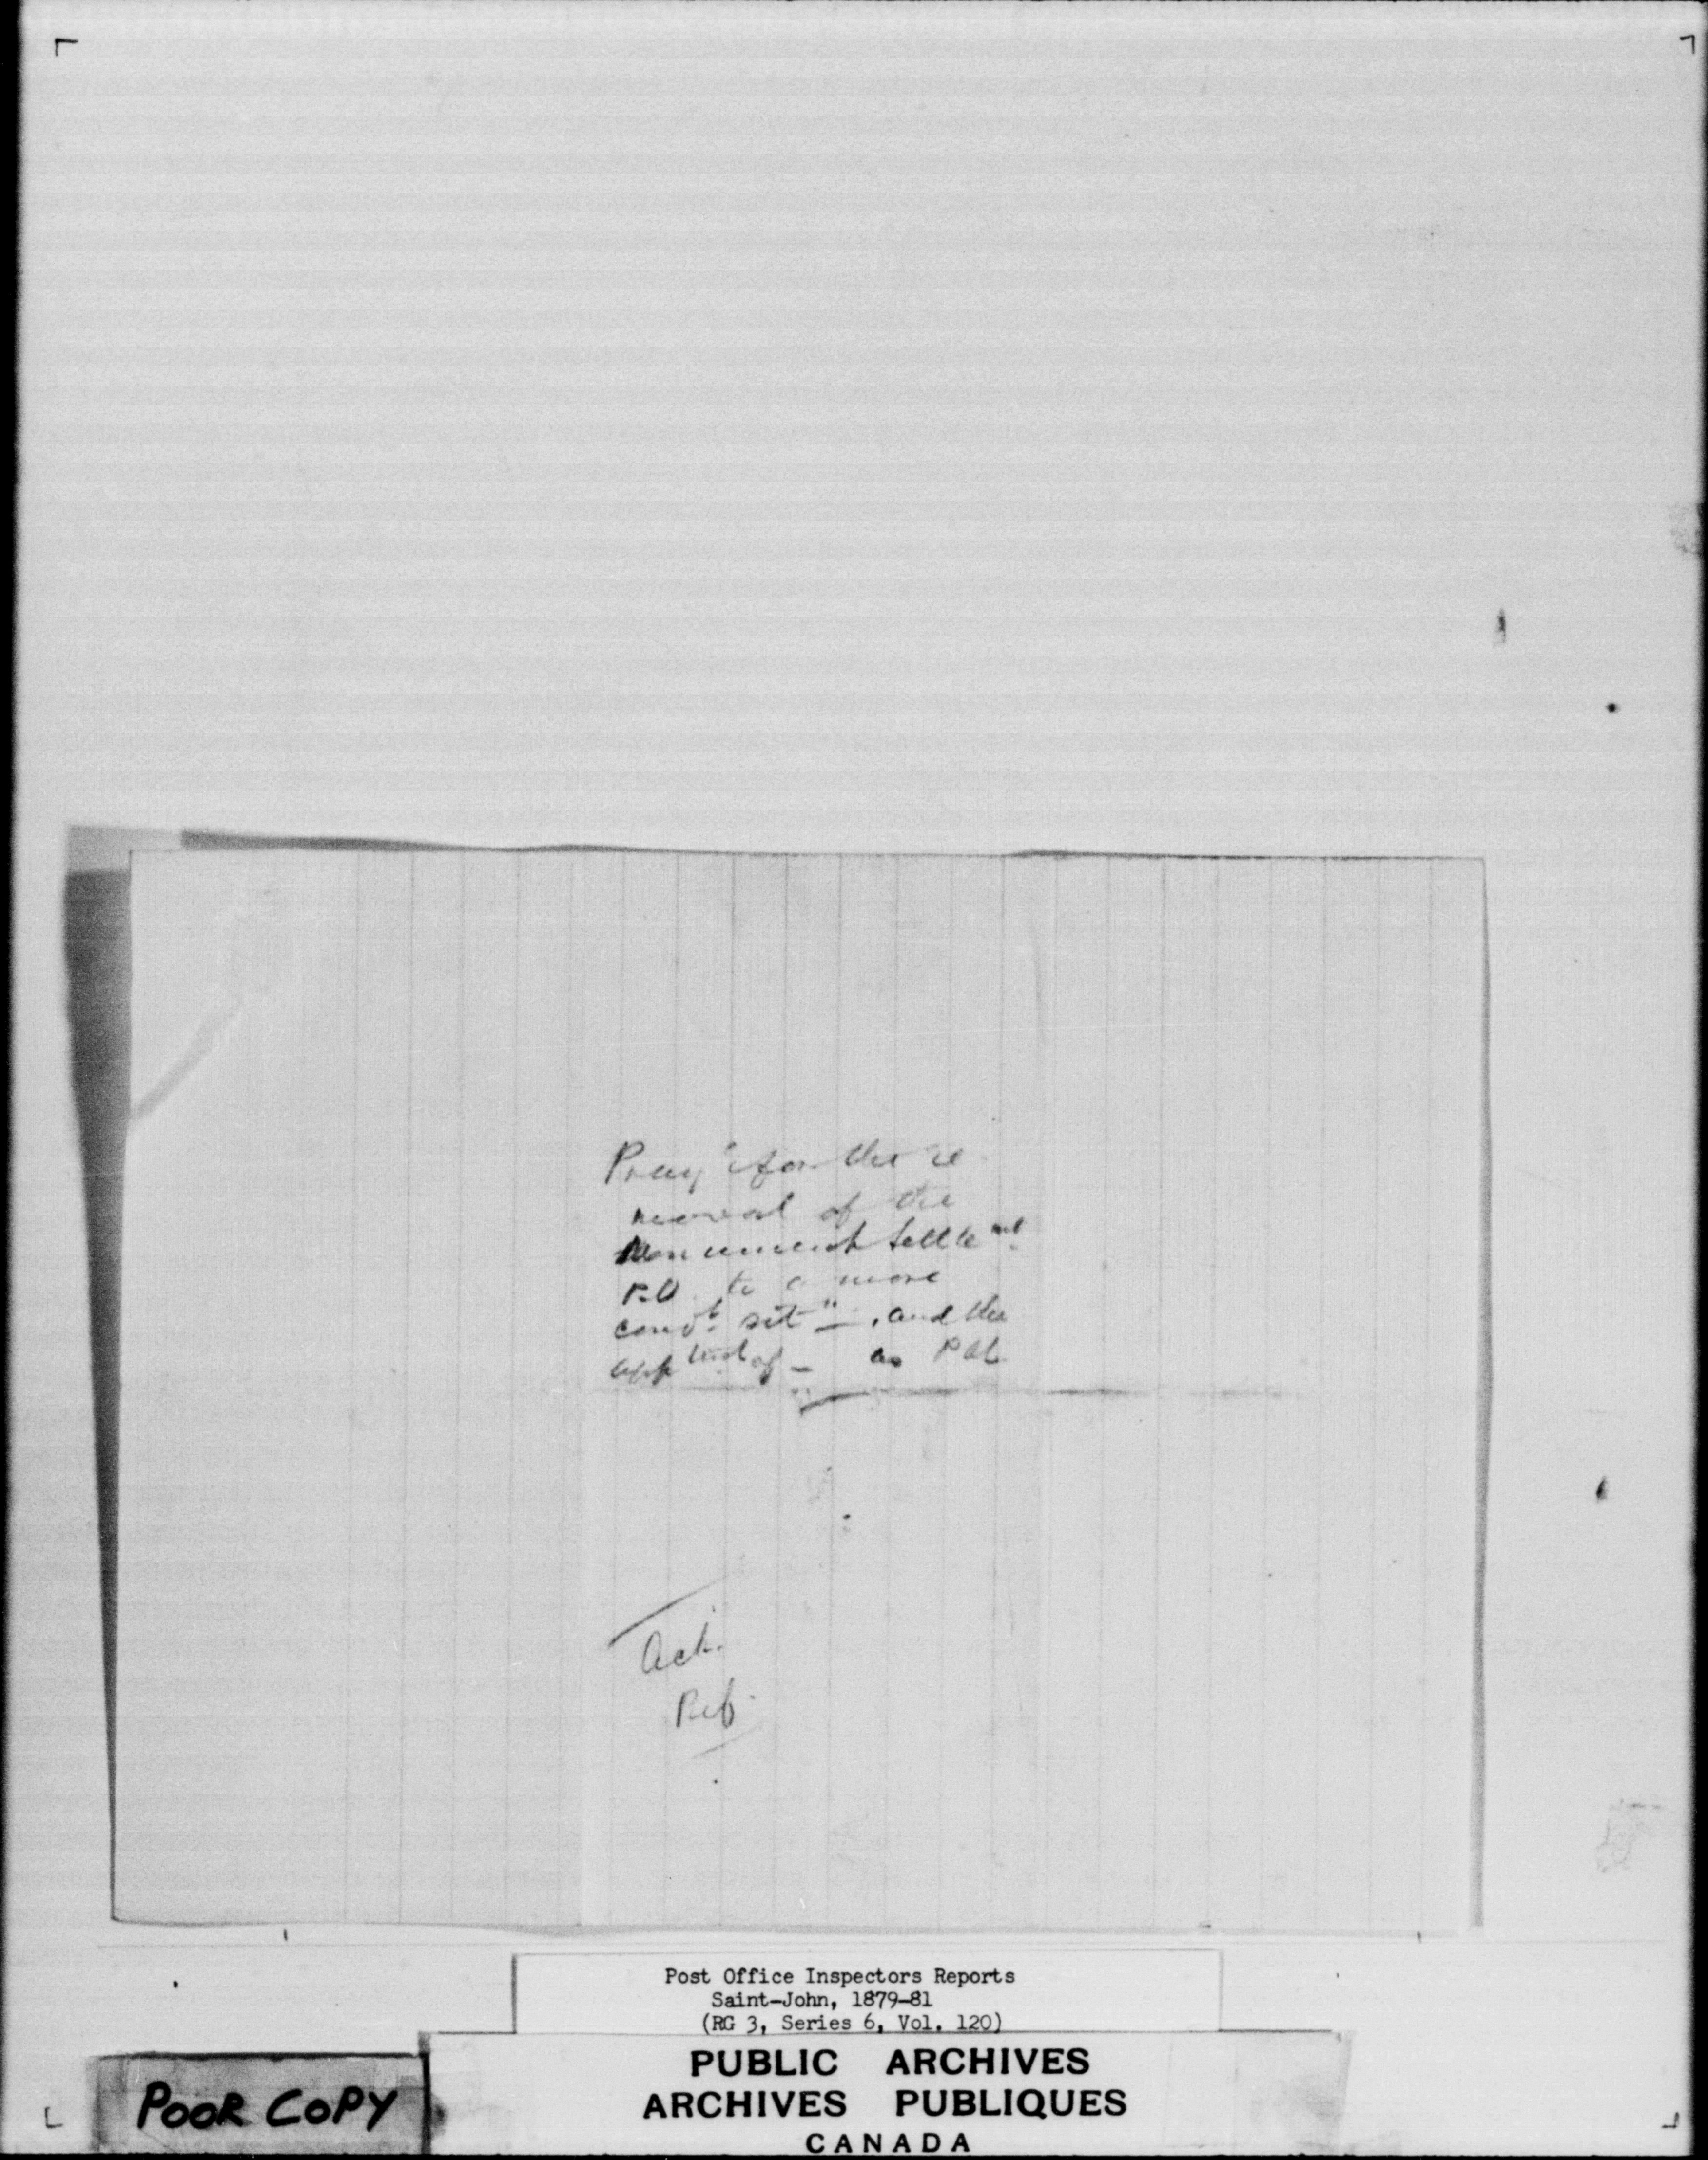 Pray'g for the re
moval of the
Monument Settlemt.
P.O. to a more
convt. sitn, and the
apptmt of — as P M
Ack.
Ref.
Post Office Inspectors Reports
Saint-John, 1879-81
(RG 3, Series 6, Vol. 120)
POOR COPY
PUBLIC ARCHIVES
ARCHIVES PUBLIQUES
CANADA